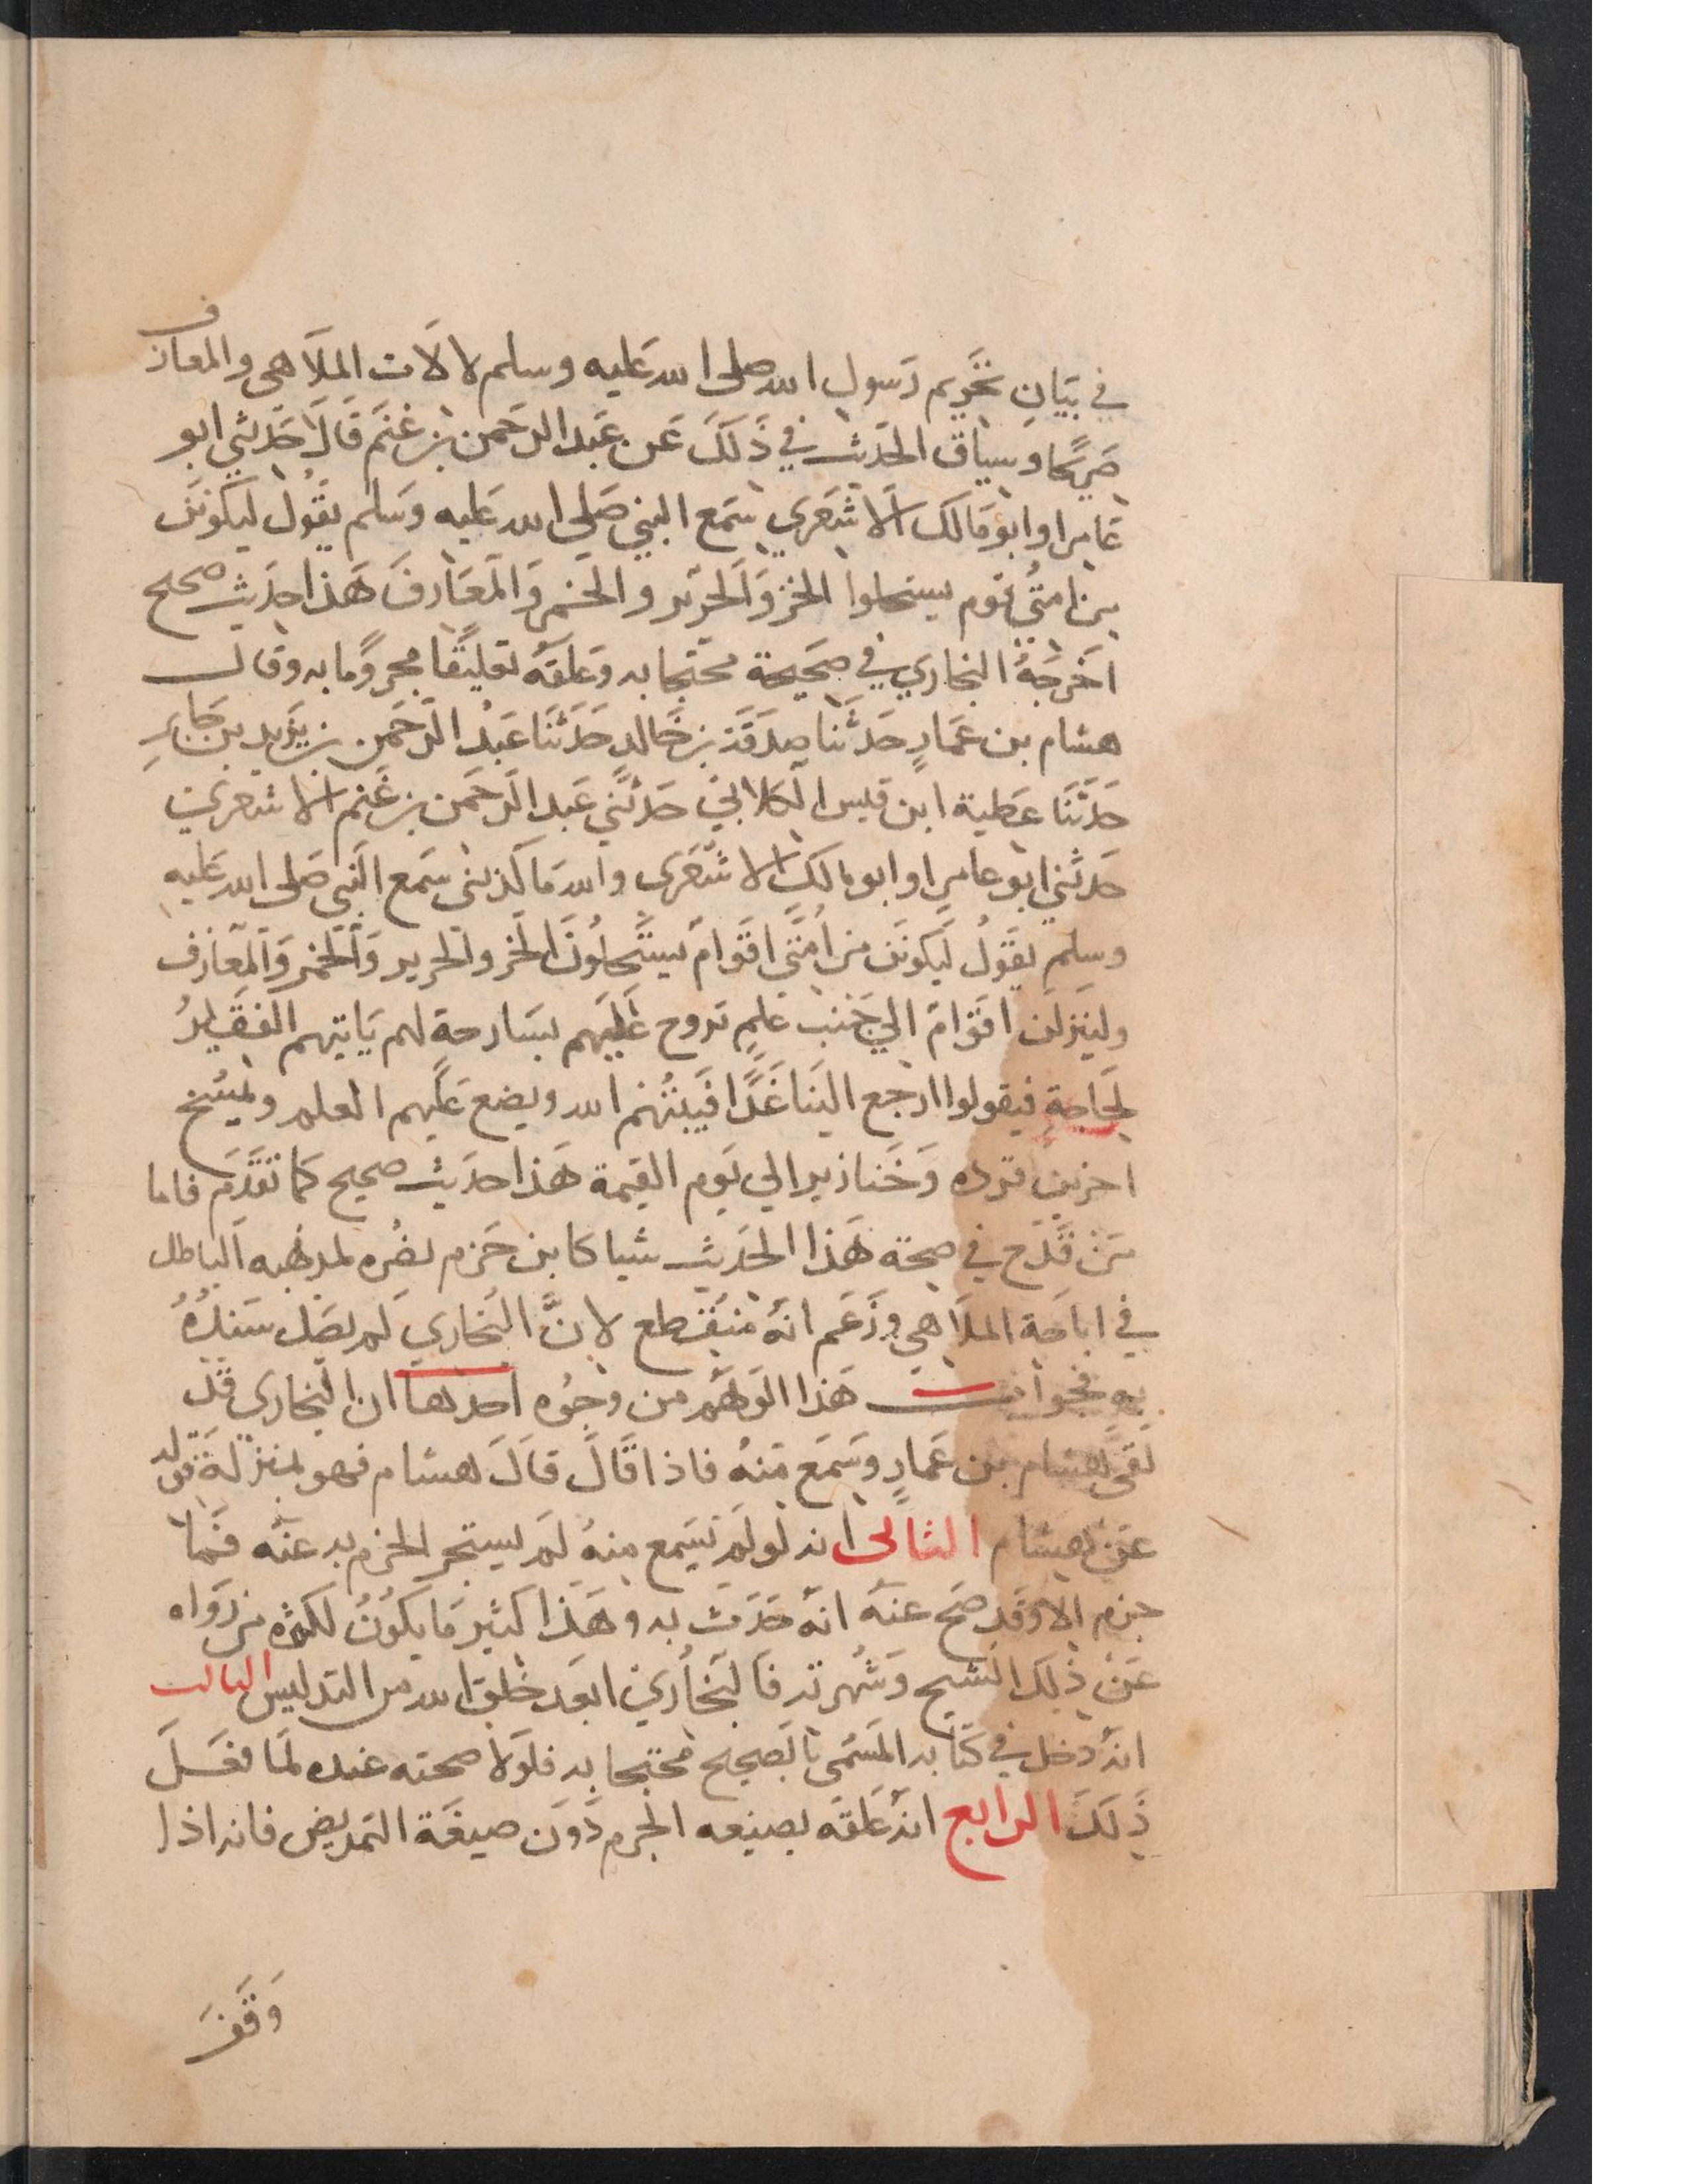 في بيان تحريم رسول الله صلى الله عليه وسلم لالات الملاهي والمعازف
صريحا وسياق الحديث في ذلك عن عبد الرحمن بن غنم قال حدثني ابو
عامر او ابو مالك الاشعري سمع النبي صلى الله عليه وسلم يقول ليكونن
من امتي قوم يستحلوا الخز والحرير والخمر والمعازف هذا حديث صحيح
اخرجه البخاري في صحيحة محتجا به وعلقه تعليقا مجزوما به وقال
هشام بن عمار حدثنا صدقة بن خالد حدثنا عبد الرحمن بن يزيد بن جابر
حدثنا عطية ابن قيس الكلابي حدثني عبد الرحمن بن غنم الاشعري
حدثني ابو عامر او ابو مالك الاشعري والله ما كذبني سمع النبي صلى الله عليه
وسلم يقول ليكونن من امتي اقوام يستحلون الخز والحرير والخمر والمعازف
ولينزلن اقوام الي جنب علم تروح عليهم بسارحة لهم ياتيهم الفقير
لحاجة فيقولوا ارجع الينا غدا فيبيتهم الله ويضع عليهم العلم ويمسخ
اخرين قرده وخنازير الي يوم القيمة هذا حديث صحيح كما تقدم فاما
من قدح في صحة هذا الحديث شيا كابن حزم نصره لمذهبه الباطل
في اباحة الملاهي وزعم انه منقطع لان البخاري لم يصل سنده
به فجواب هذا الوهم من وجوه احدها ان البخاري قد
لقى هشام بن عمار وسمع منه فاذا قال قال هشام فهو بمنزلة قوله
عن هشام الثانى انه لو لم يسمع منه لم يستجز الجزم به عنه فما
جزم الا وقد صح عنه انه حدث به وهذا كثير ما يكون لكثره من رواه
عن ذلك الشيح وشهرته فالبخاري ابعد خلق الله من التدليس الثالث
انه دخل في كتابه المسمي بالصحيح محتجا به فلولا صحته عنده لما فعل
ذلك الرابع انه علقه بصيغه الجزم دون صيغة التمريض فانه اذا
وقف